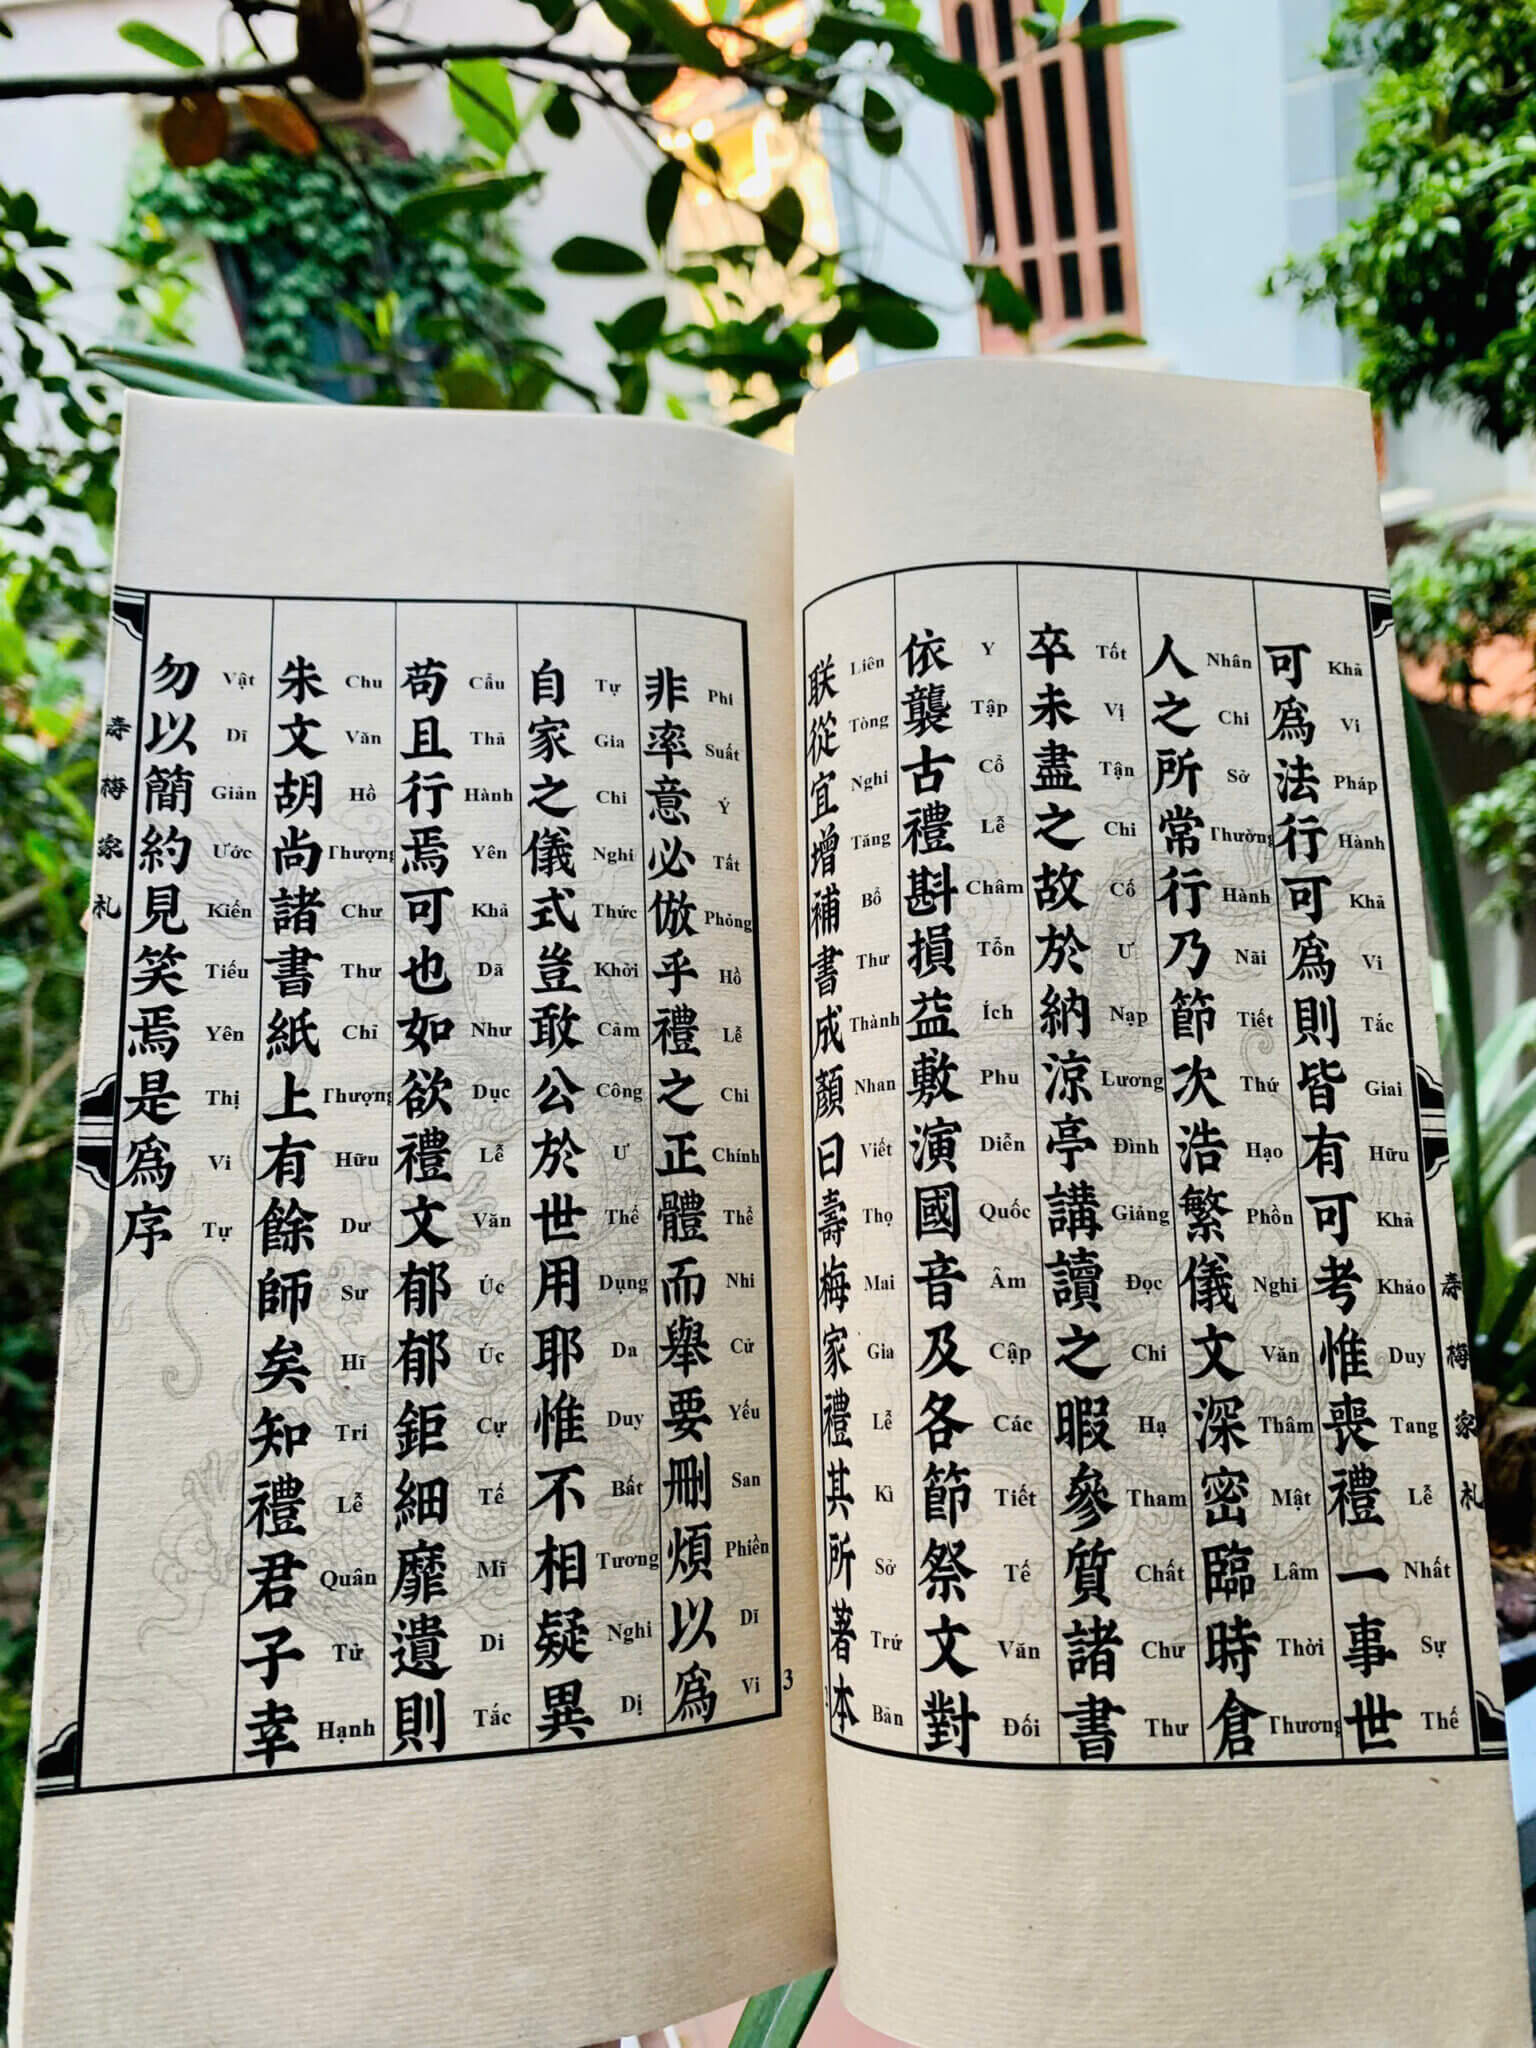 寿梅家礼
可爲法行可爲則皆有可考惟喪禮一事世
Khả Vi Pháp Hành Khả Vi Tắc Giai Hữu Khả Khảo Duy Tang Lễ Nhất Sự Thế
人之所常行乃節次浩繁儀文深密臨時倉
Nhân Chi Sở Thường Hành Nãi Tiết Thứ Hạo Phồn Nghi Văn Thâm Mật Lâm Thời Thương
卒未盡之故於納涼亭講讀之暇參質諸書
Tốt Vị Tận Chi Cố Ư Nạp Lương Đình Giảng Đọc Chi Hạ Tham Chất Chư Thư
依襲古禮斟損益敷演國音及各節祭文對
Y Tập Cổ Lễ Châm Tổn Ích Phu Diễn Quốc Âm Cập Các Tiết Tế Văn Đối
联從宜增補書成顏曰壽梅家禮其所著本
Liên Tòng Nghi Tăng Bổ Thư Thành Nhan Viết Thọ Mai Gia Lễ Kì Sở Trứ Bản
非率意必倣乎禮之正體而舉要刪煩以爲
Phi Suất Ý Tất Phỏng Hồ Lễ Chi Chính Thể Nhi Cử Yếu San Phiền Dĩ Vi
自家之儀式豈敢公於世用耶惟不相疑異
Tự Gia Chi Nghi Thức Khởi Cảm Công Ư Thế Dụng Da Duy Bất Tương Nghi Dị
苟且行焉可也如欲禮文郁郁鉅細靡遺則
Cẩu Thả Hành Yên Khả Dã Như Dục Lễ Văn Úc Úc Cự Tế Mĩ Di Tắc
朱文胡尚諸書紙上有餘師矣知禮君子幸
Chu Văn Hồ Thượng Chư Thư Chỉ Thượng Hữu Dư Sư Hĩ Tri Lễ Quân Tử Hạnh
勿以簡約見笑焉是爲序
Vật Dĩ Giản Ước Kiến Tiếu Yên Thị Vi Tự
寿梅家礼
3